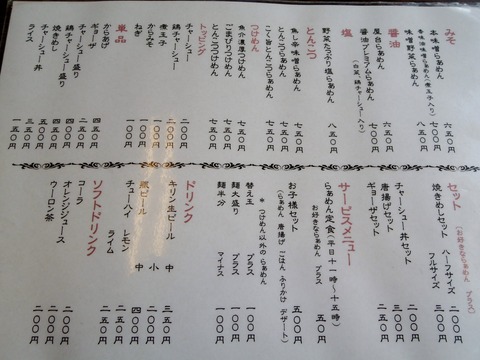 みそ
本味噌らあめん 六五〇円
香味油味噌らあめん(煮玉子入り) 七五〇円
味噌野菜らあめん 八五〇円
醤油
屋台らあめん 六五〇円
醤油プレミアムらあめん 七五〇円
(白菜、鶏チャーシュー入り)
塩
野菜たっぷり塩らあめん 八五〇円
とんこつ
魚し辛味噌らあめん 七五〇円
こく旨とんこつらあめん 七五〇円
とんこつらあめん 七五〇円
つけめん
魚介濃厚つけめん 七五〇円
ごまだれつけめん 七五〇円
とんこつつけめん 七五〇円
トッピング
チャーシュー 二〇〇円
鶏チャーシュー 二〇〇円
からみそ 一〇〇円
煮玉子 一〇〇円
ねぎ 一〇〇円
単品
からあげ 四五〇円
ギョーザ
チャーシュー盛り
鶏チャーシュー盛り
焼きめし
チャーシュー丼 三五〇円
ライス 一五〇円
セット (お好きならあめん プラス)
焼きめしセット ハーフサイズ 二〇〇円
フルサイズ 三〇〇円
チャーシュー丼セット 三〇〇円
唐揚げセット
ギョーザセット
サービスメニュー
らあめん定食(平日十一時~十五時)
お好きならあめん プラス 五〇円
お子様セット 五〇〇円
(らあめん 唐揚げ ごはん ふりかけ デザート)
*つけめん以外のらあめん
替え玉 プラス 一〇〇円
麺大盛り プラス 一〇〇円
麺半分 マイナス
ドリンク
キリン生ビール 中
小
瓶ビール 中
チューハイ レモン
ライム
ソフトドリンク
コーラ 二〇〇円
オレンジジュース 二〇〇円
ウーロン茶 二〇〇円